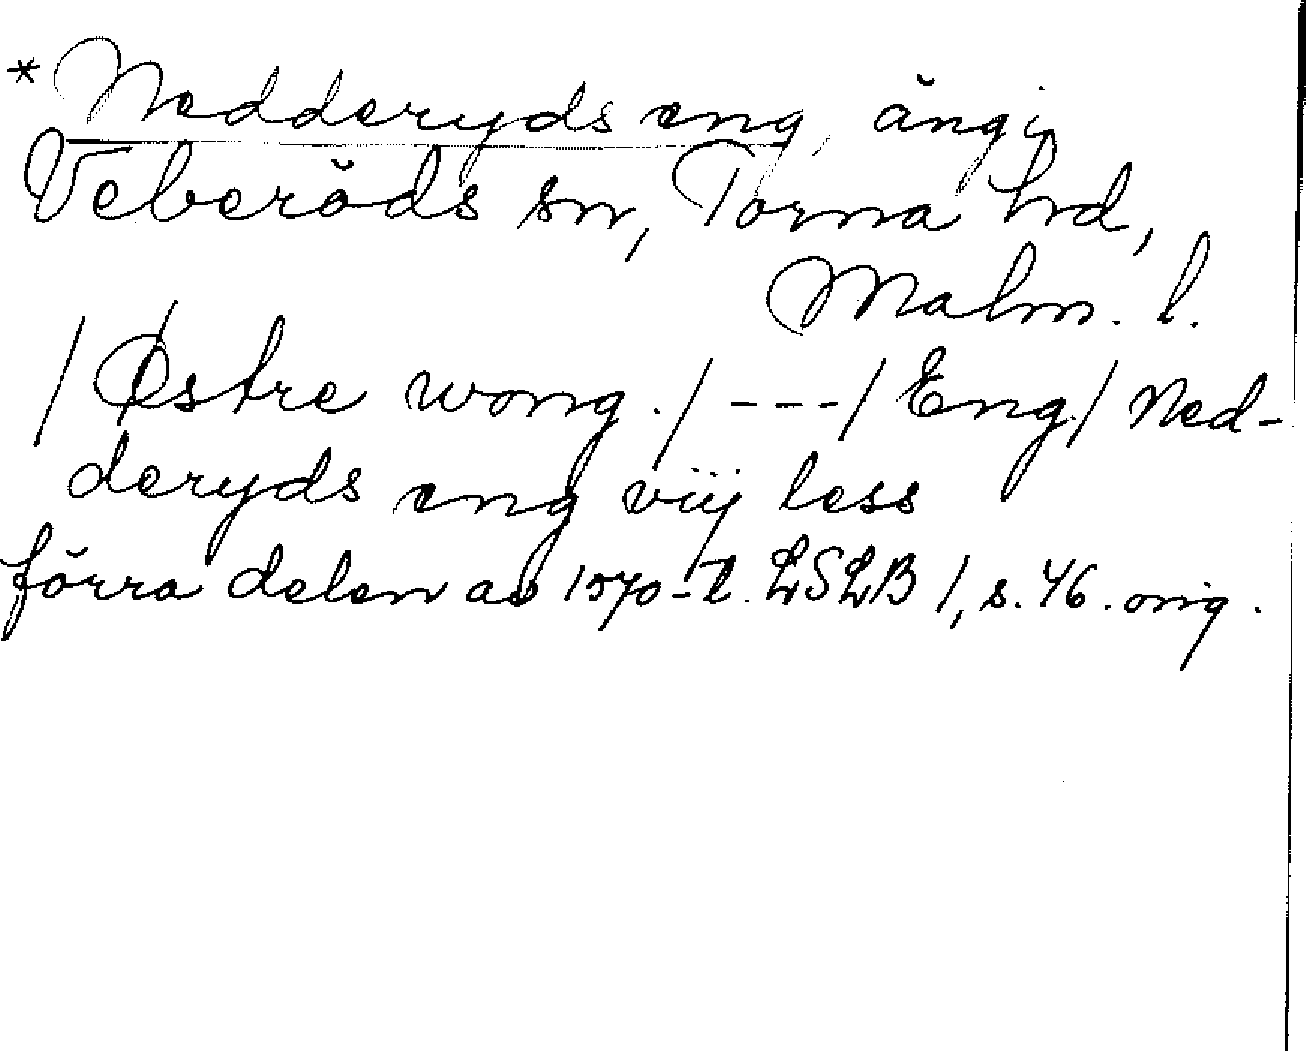 * Nedderyds eng, äng i
Veberöds sn, Torna hd,
Malm. l.
/Østre wong./ ---/Eng/ Ned-
deryds eng viij less
förra delen av 1570-t. LSLB 1, s. 46. orig.